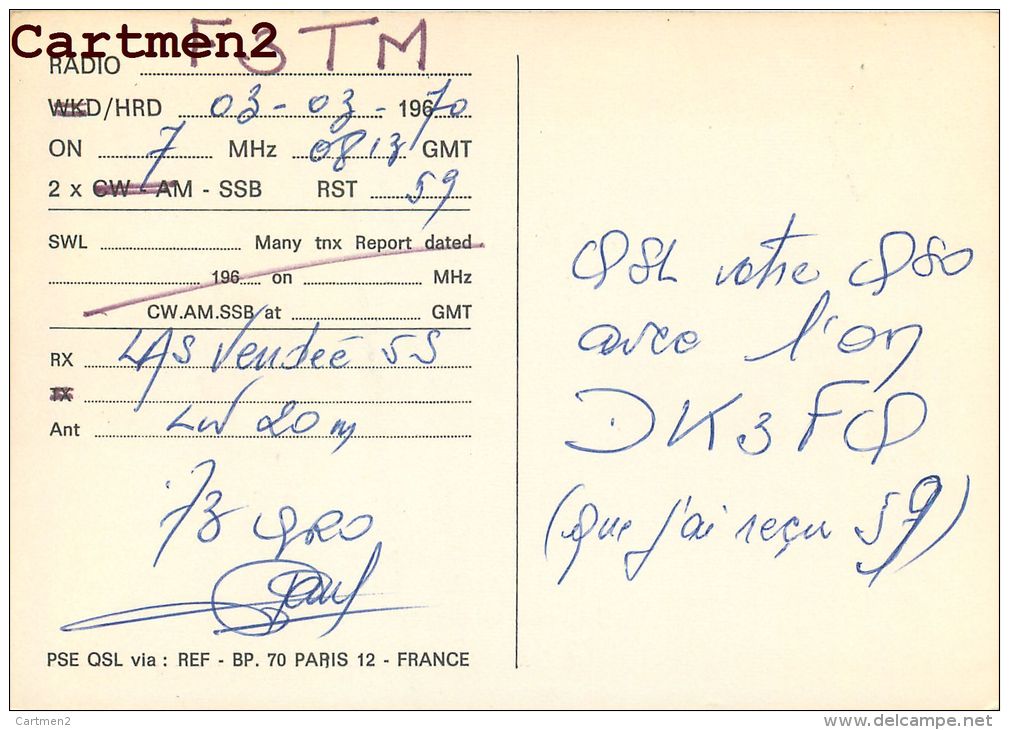 Cartmen2
RADIO F3TM
WKD/HRD 03-03-1970
ON 7 MHz 0813 GMT
2 x CW - AM - SSB RST 59
SWL Many tnx Report dated
196 on MHz
CW.AM.SSB at GMT
RX LAS Vendée 5S
TX
Ant LW 20 m
73 QRO
PSE QSL via : REF - BP. 70 PARIS 12 - FRANCE
QSL votre QSO
avec l'on
DK3FQ
(que j'ai reçu 59)
Cartmen2
www.delcampe.net